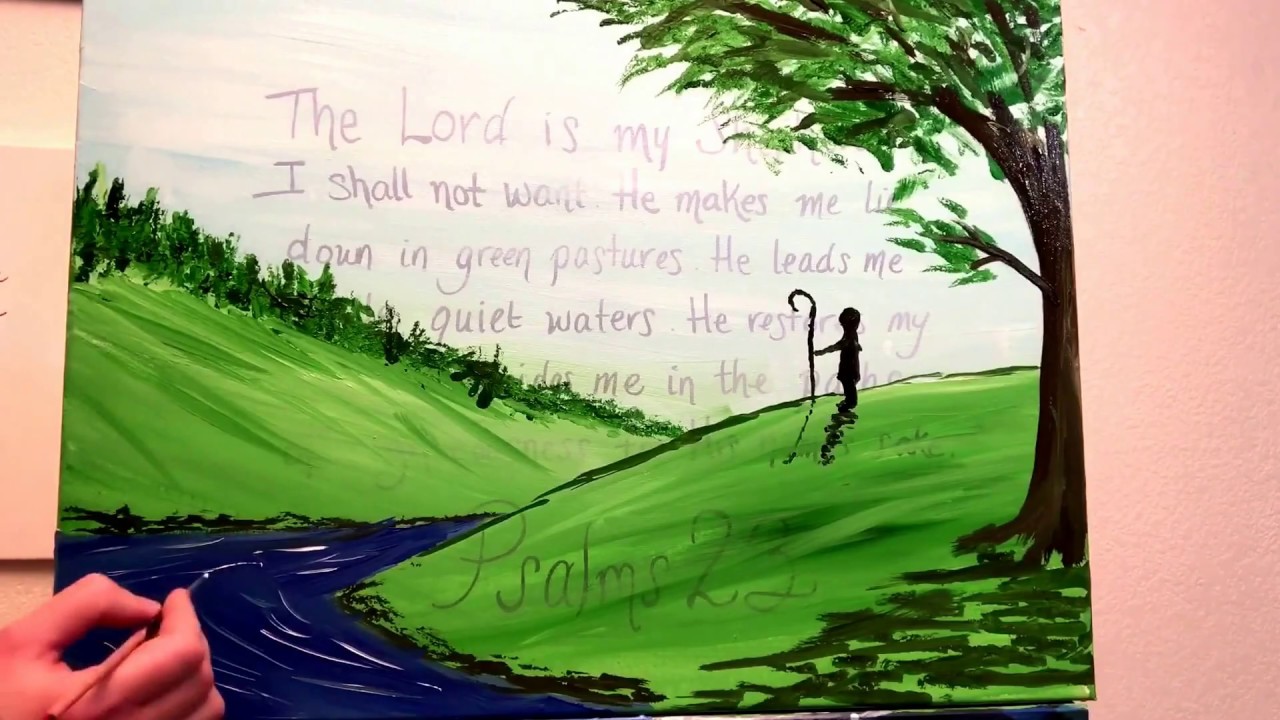 The Lord is my
I shall not want. He makes me lie
down in green pastures. He leads me
quiet waters. He restores my
me in the paths
His name's sake.
Psalms 23